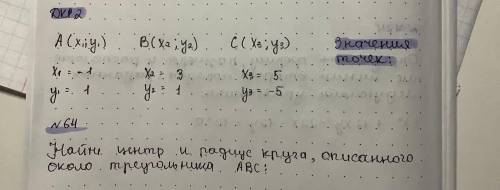 ДКР2
A(x₁;y₁) B(x₂;y₂) C(x₃;y₃) Значения точек:
x₁ = -1 x₂ = 3 x₃ = 5
y₁ = 1 y₂ = 1 y₃ = -5
№64
Найти центр и радиус круга, описанного
около треугольника ABC: